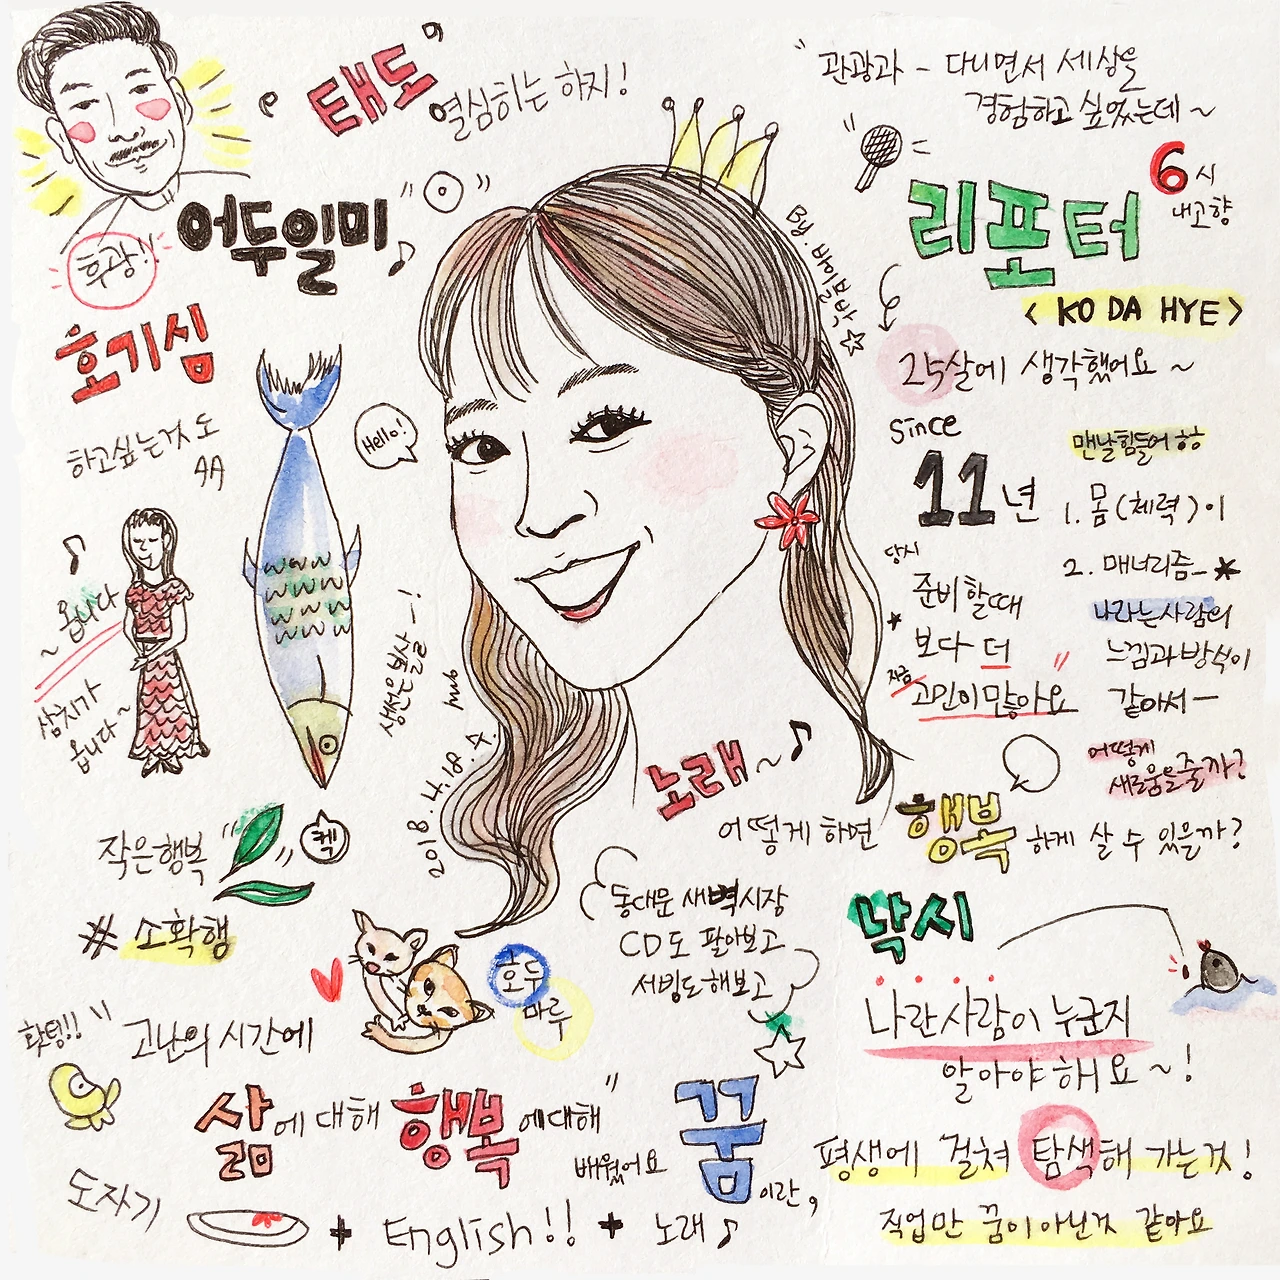 태도
열심히는 하지!
어두일미
후광!!
호기심
하고싶은것도
Hello!
~ 옵니다
삼치가
옵니다~
생선은 몸살 물
작은행복
켁
# 소확행
2018. 4. 18. 수.
By. 버라이어티삶
"관광과 - 다니면서 세상을
경험하고 싶었는데 ~
6시
내고향
리포터
< KO DA HYE >
25살에 생각했어요 ~
since
11년
당시
준비할때
보다 더
지금
고민이많아요
맨날힘들어 ㅎㅎ
1. 몸(체력)이
2. 매너리즘_*
나라는사람의
느낌과방식이
같아서 —
어떻게
새로움을줄까?
노래~♪
어떻게 하면 행복하게 살 수 있을까?
동대문 새벽시장
CD도 팔아보고
서빙도해보고
낚시
나란사람이 누군지
알아야해요~!
호두
마루
홧팅!!
고난의 시간에
삶에 대해 행복에대해
배웠어요
꿈이란,
평생에 걸쳐 탐색해 가는것!
직업만 꿈이아닌것 같아요
도자기
+ English!! + 노래♪